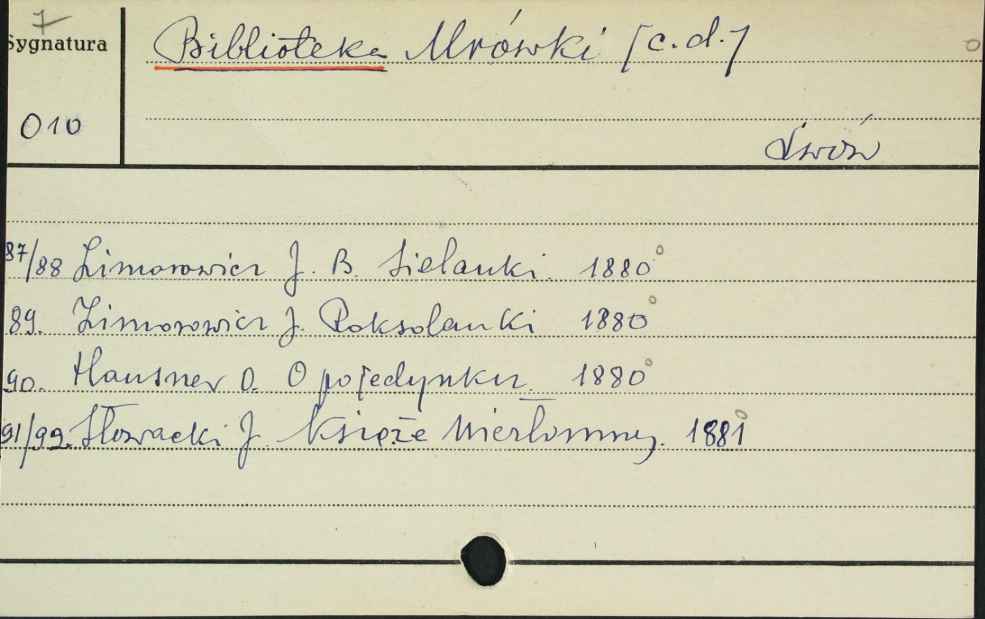 7
Sygnatura
Biblioteka Mrówki [c.d.]
010
Lwów
87/88 Zimorowicz J. B. Sielanki. 1880
89. Zimorowicz J. Roksolanki 1880
90. Hausner O. O pojedynku. 1880
91/92. Słowacki J. Książe Niezłomny. 1881